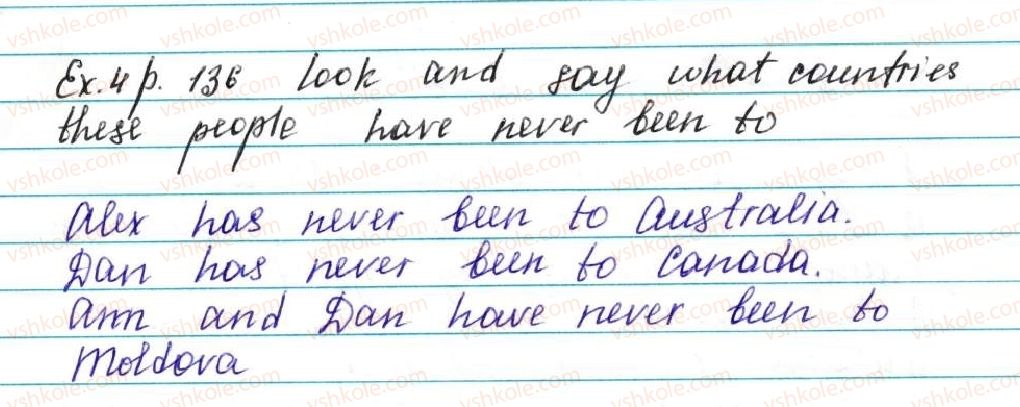 Ex. 4 p. 136 look and say what countries
these people have never been to
Alex has never been to Australia.
Dan has never been to Canada.
Ann and Dan have never been to
Moldova